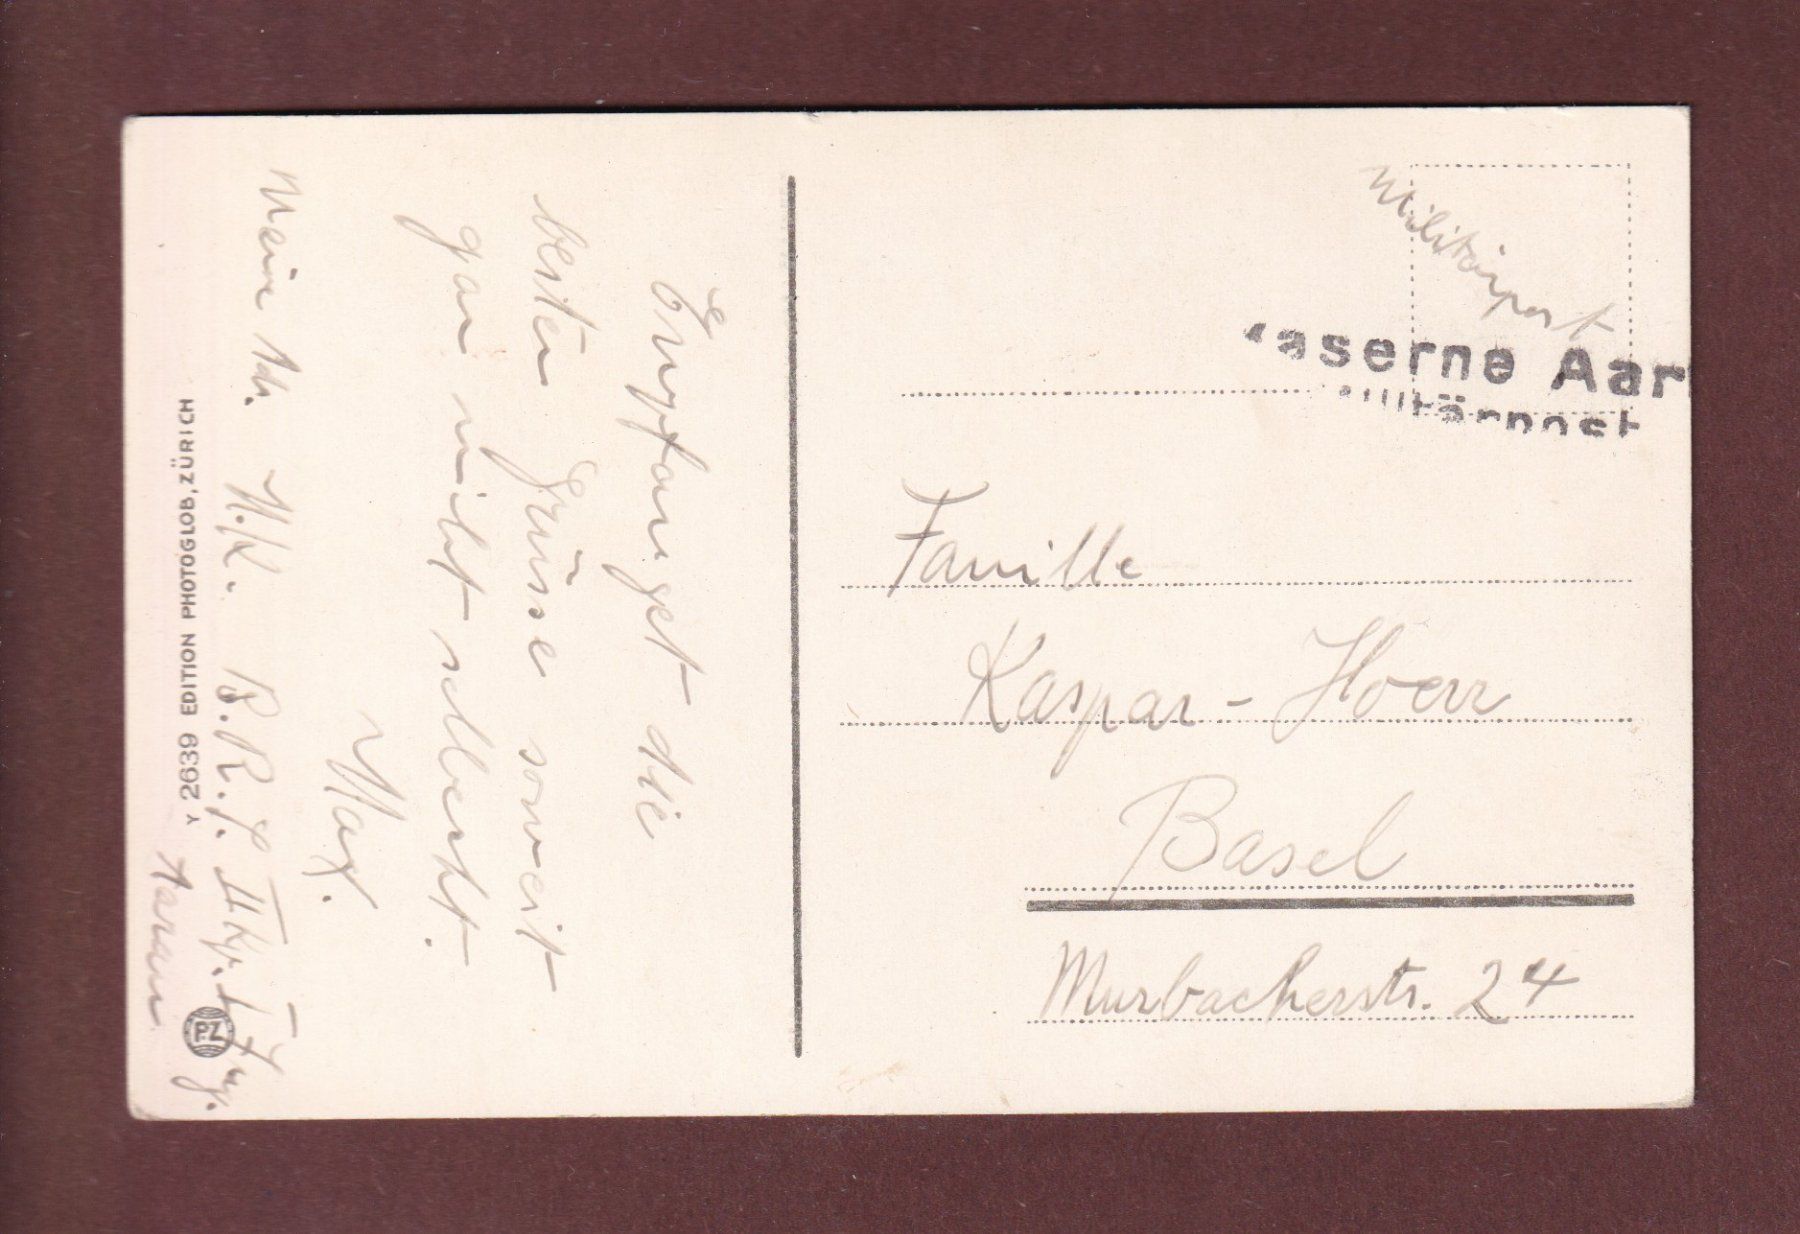 Empfanget die
besten Grüsse soweit
gar nicht schlecht.
Max.
Mein Adr. H.K. B.R.S. II Kp. I Zug.
Aarau.
Y 2639 EDITION PHOTOGLOB, ZÜRICH
PZ
Militärpost
aserne Aar
litärpost
Famille
Kaspar-Hoerr
Basel
Murbacherstr. 24